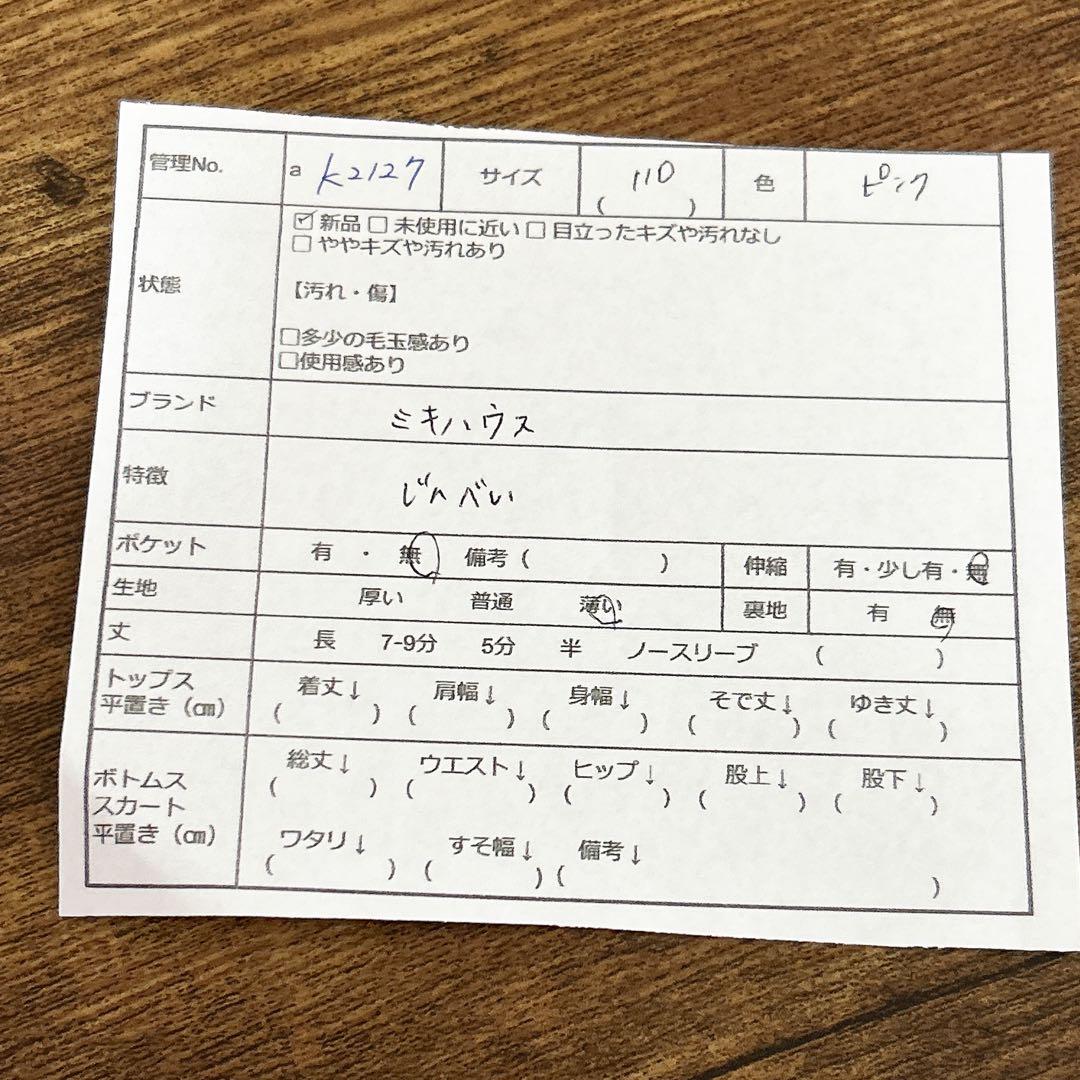 管理No. a K2127 サイズ 110 ( ) 色 ピンク
状態
☑ 新品 □ 未使用に近い □ 目立ったキズや汚れなし
□ ややキズや汚れあり
【汚れ・傷】
□多少の毛玉感あり
□使用感あり
ブランド ミキハウス
特徴 じんべい
ポケット 有 ・ 無 備考 ( ) 伸縮 有・少し有・無
生地 厚い 普通 薄い 裏地 有 無
丈 長 7-9分 5分 半 ノースリーブ ( )
トップス
平置き (㎝)
着丈↓ 肩幅↓ 身幅↓ そで丈↓ ゆき丈↓
( ) ( ) ( ) ( ) ( )
ボトムス
スカート
平置き (㎝)
総丈↓ ウエスト↓ ヒップ↓ 股上↓ 股下↓
( ) ( ) ( ) ( ) ( )
ワタリ↓ すそ幅↓ 備考↓
( ) ( ) ( )